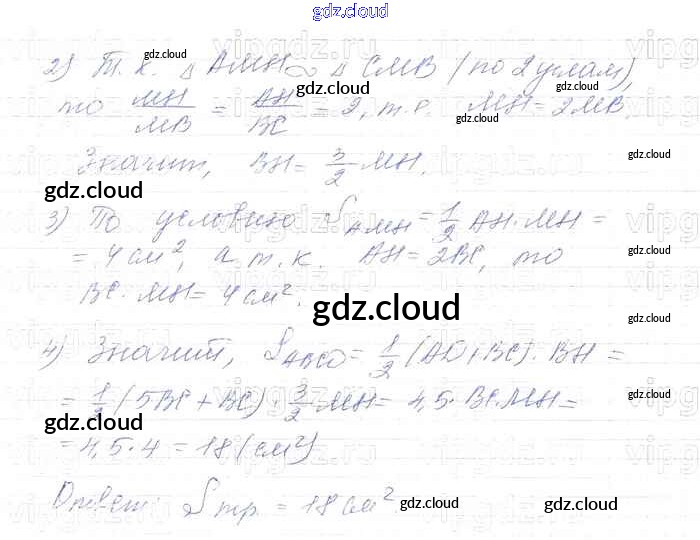 gdz.cloud
2) Т. к. △ AMH ∾ △ CMB (по 2 углам),
то MH/MB = AH/BC = 2, т.е. MH = 2MB.
Значит, BH = 3/2 MH.
3) По условию S_AMH = 1/2 AH · MH =
= 4 см², а т. к. AH = 2BC, то
BC · MH = 4 см².
4) Значит, S_ABCD = 1/2 (AD + BC) · BH =
= 1/2 (5BC + BC) · 3/2 MH = 4,5 · BC · MH =
= 4,5 · 4 = 18 (см²)
Ответ: S тр. = 18 см².
gdz.cloud
gdz.cloud
gdz.cloud
gdz.cloud
gdz.cloud
gdz.cloud
gdz.cloud
gdz.cloud
gdz.cloud
gdz.cloud
gdz.cloud
gdz.cloud
gdz.cloud